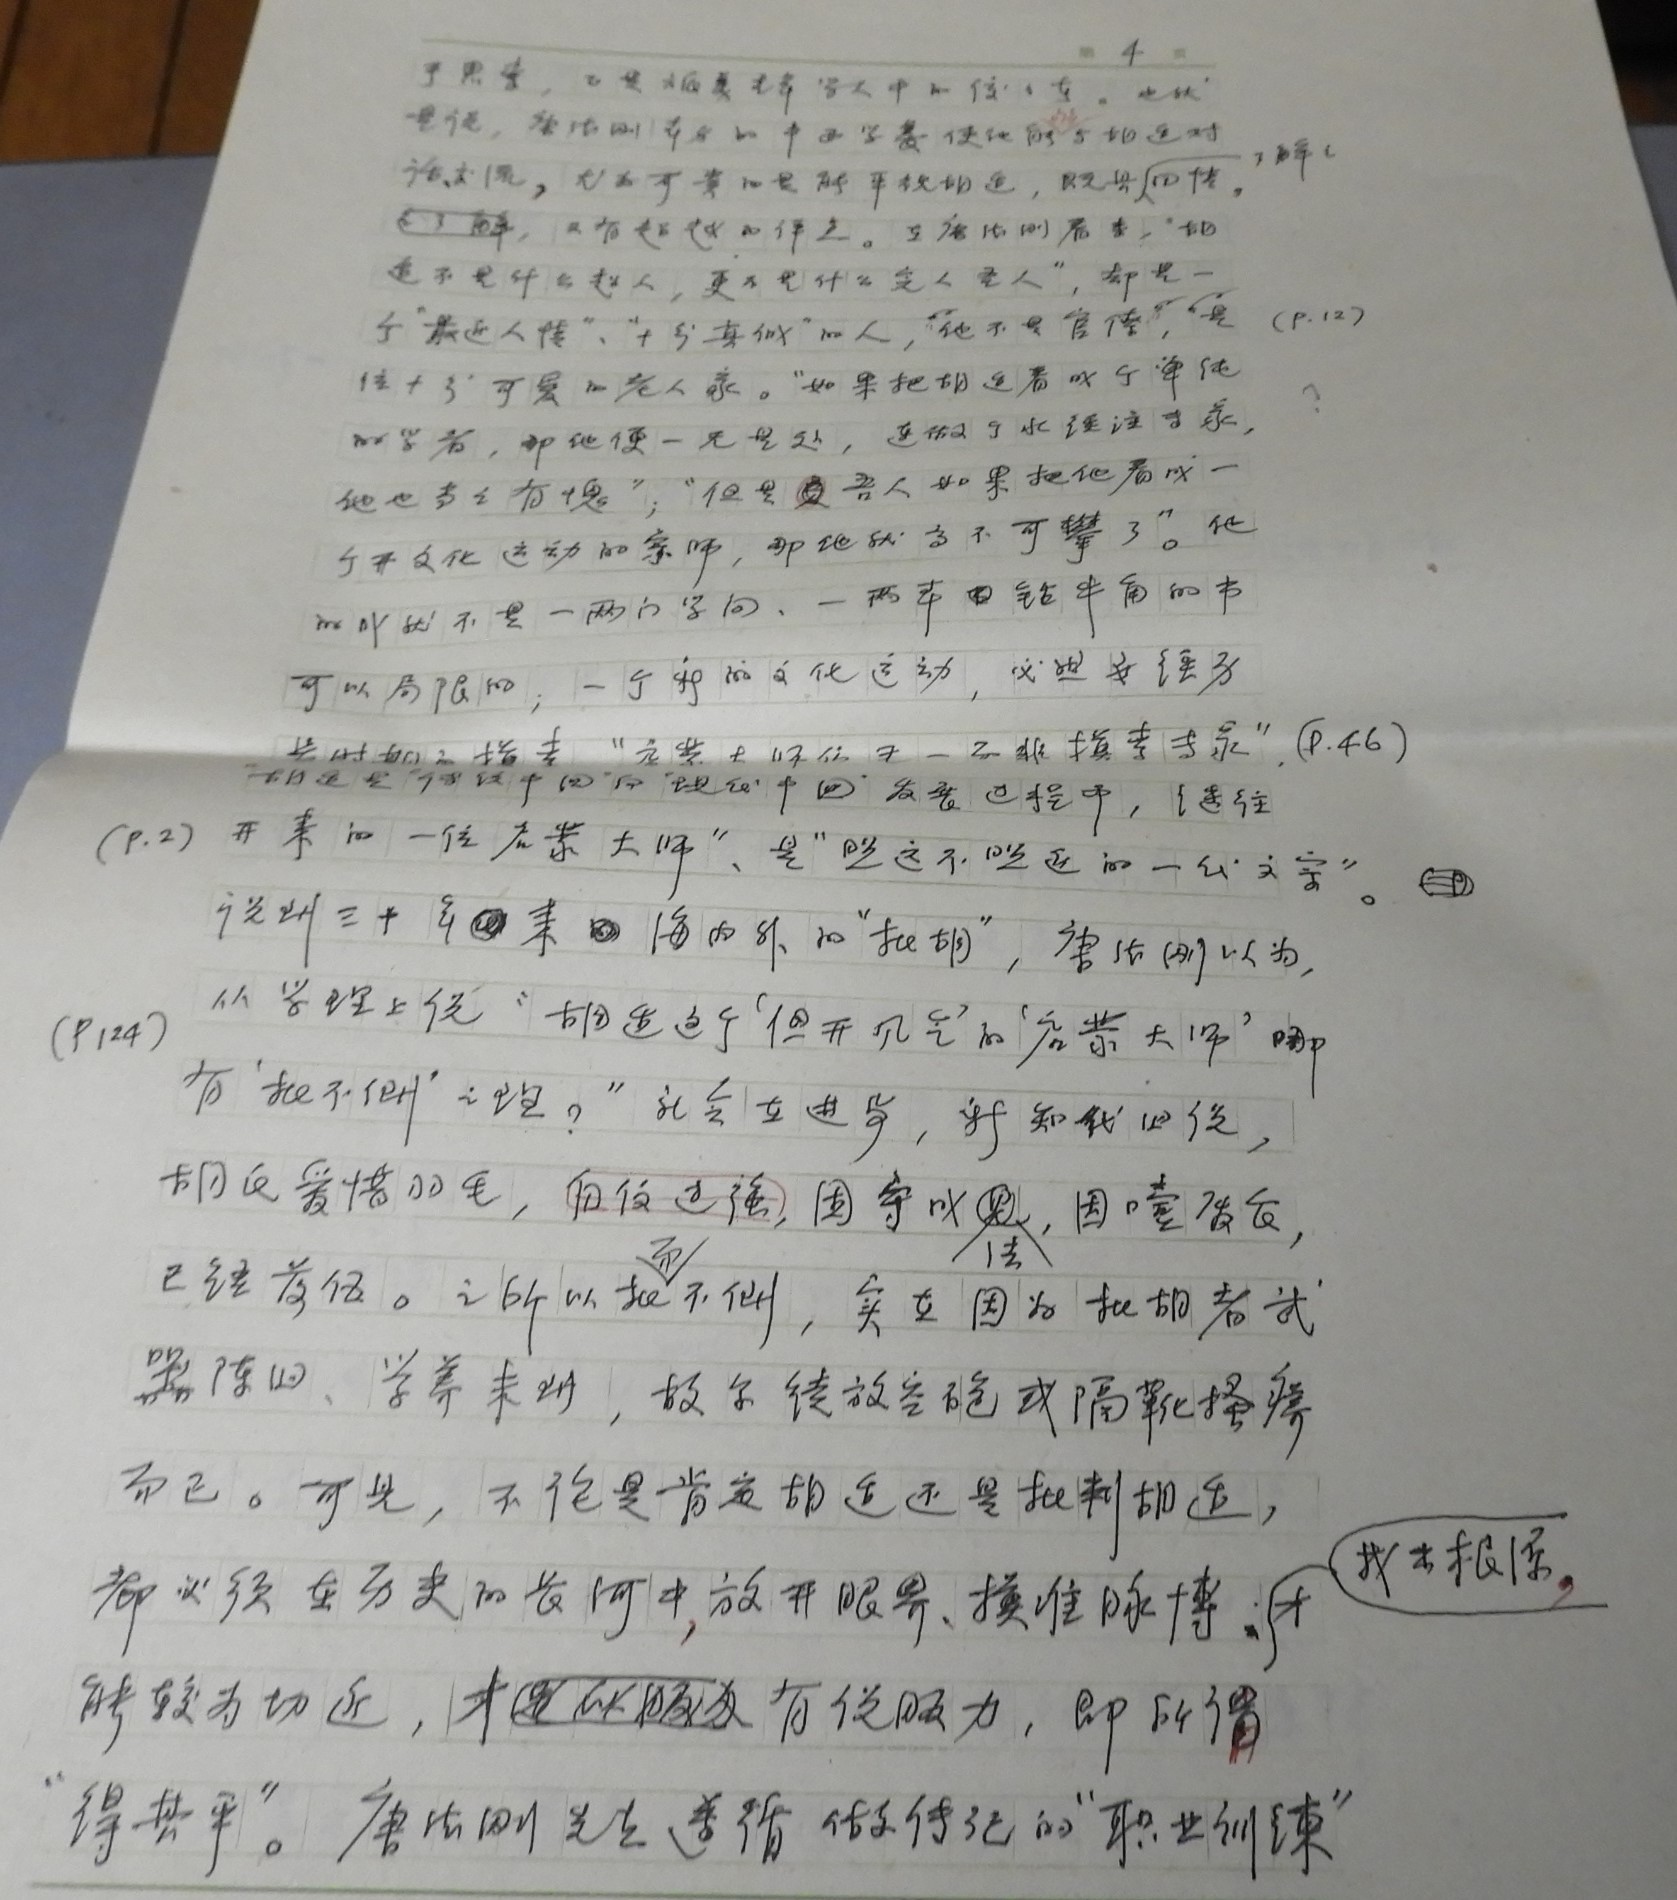 4
于思考，
是说，唐德刚 的中西学养使他能与胡适对
话交流，尤为可贵的是能平视胡适，既具 同情，
了解，又有超越的 。在唐德刚看来，“胡
适不是什么超人，更不是什么完人圣人”，却是一
个“最近人情”、“十分真诚”的人，“他不是官僚”，“是 (P.12)
位十分可爱的老人家。“如果把胡适看成个单纯 ?
的学者，那他便一无是处，连做个水经注专家，
他也当之有愧”；“但是吾人如果把他看成一
个开文化运动的宗师，那他就高不可攀了”。他
的成就不是一两门学问、一两本钻牛角的书
可以局限的；一个新的文化运动，必然要经历
长时期的摸索，“启蒙大师 无一不非摸索专家”，(P.46)
胡适是“传统中国”向“现代中国”发展过程中，继往
(P.2) 开来的一位启蒙大师”、是“照远不照近的一代文宗”。
说到三十年来海内外的“批胡”，唐德刚以为，
从学理上说“胡适这个‘但开风气’的‘启蒙大师’哪
(P124)
有‘批不倒’之理？”社会在进步，新知代旧说，
胡氏爱惜羽毛，自信过强，固守成法，因噎废食，
已经落伍。之所以批而不倒，实在因为批胡者武
器陈旧、学养未到，故尔徒放空炮或隔靴搔痒
而已。可见，不论是肯定胡适还是批判胡适，
都必须在历史的长河中，放开眼界、摸准脉搏、找出根源，才
能较为切近，才有说服力，即所谓
“得其平”。唐德刚先生遵循做传记的“职业训练”